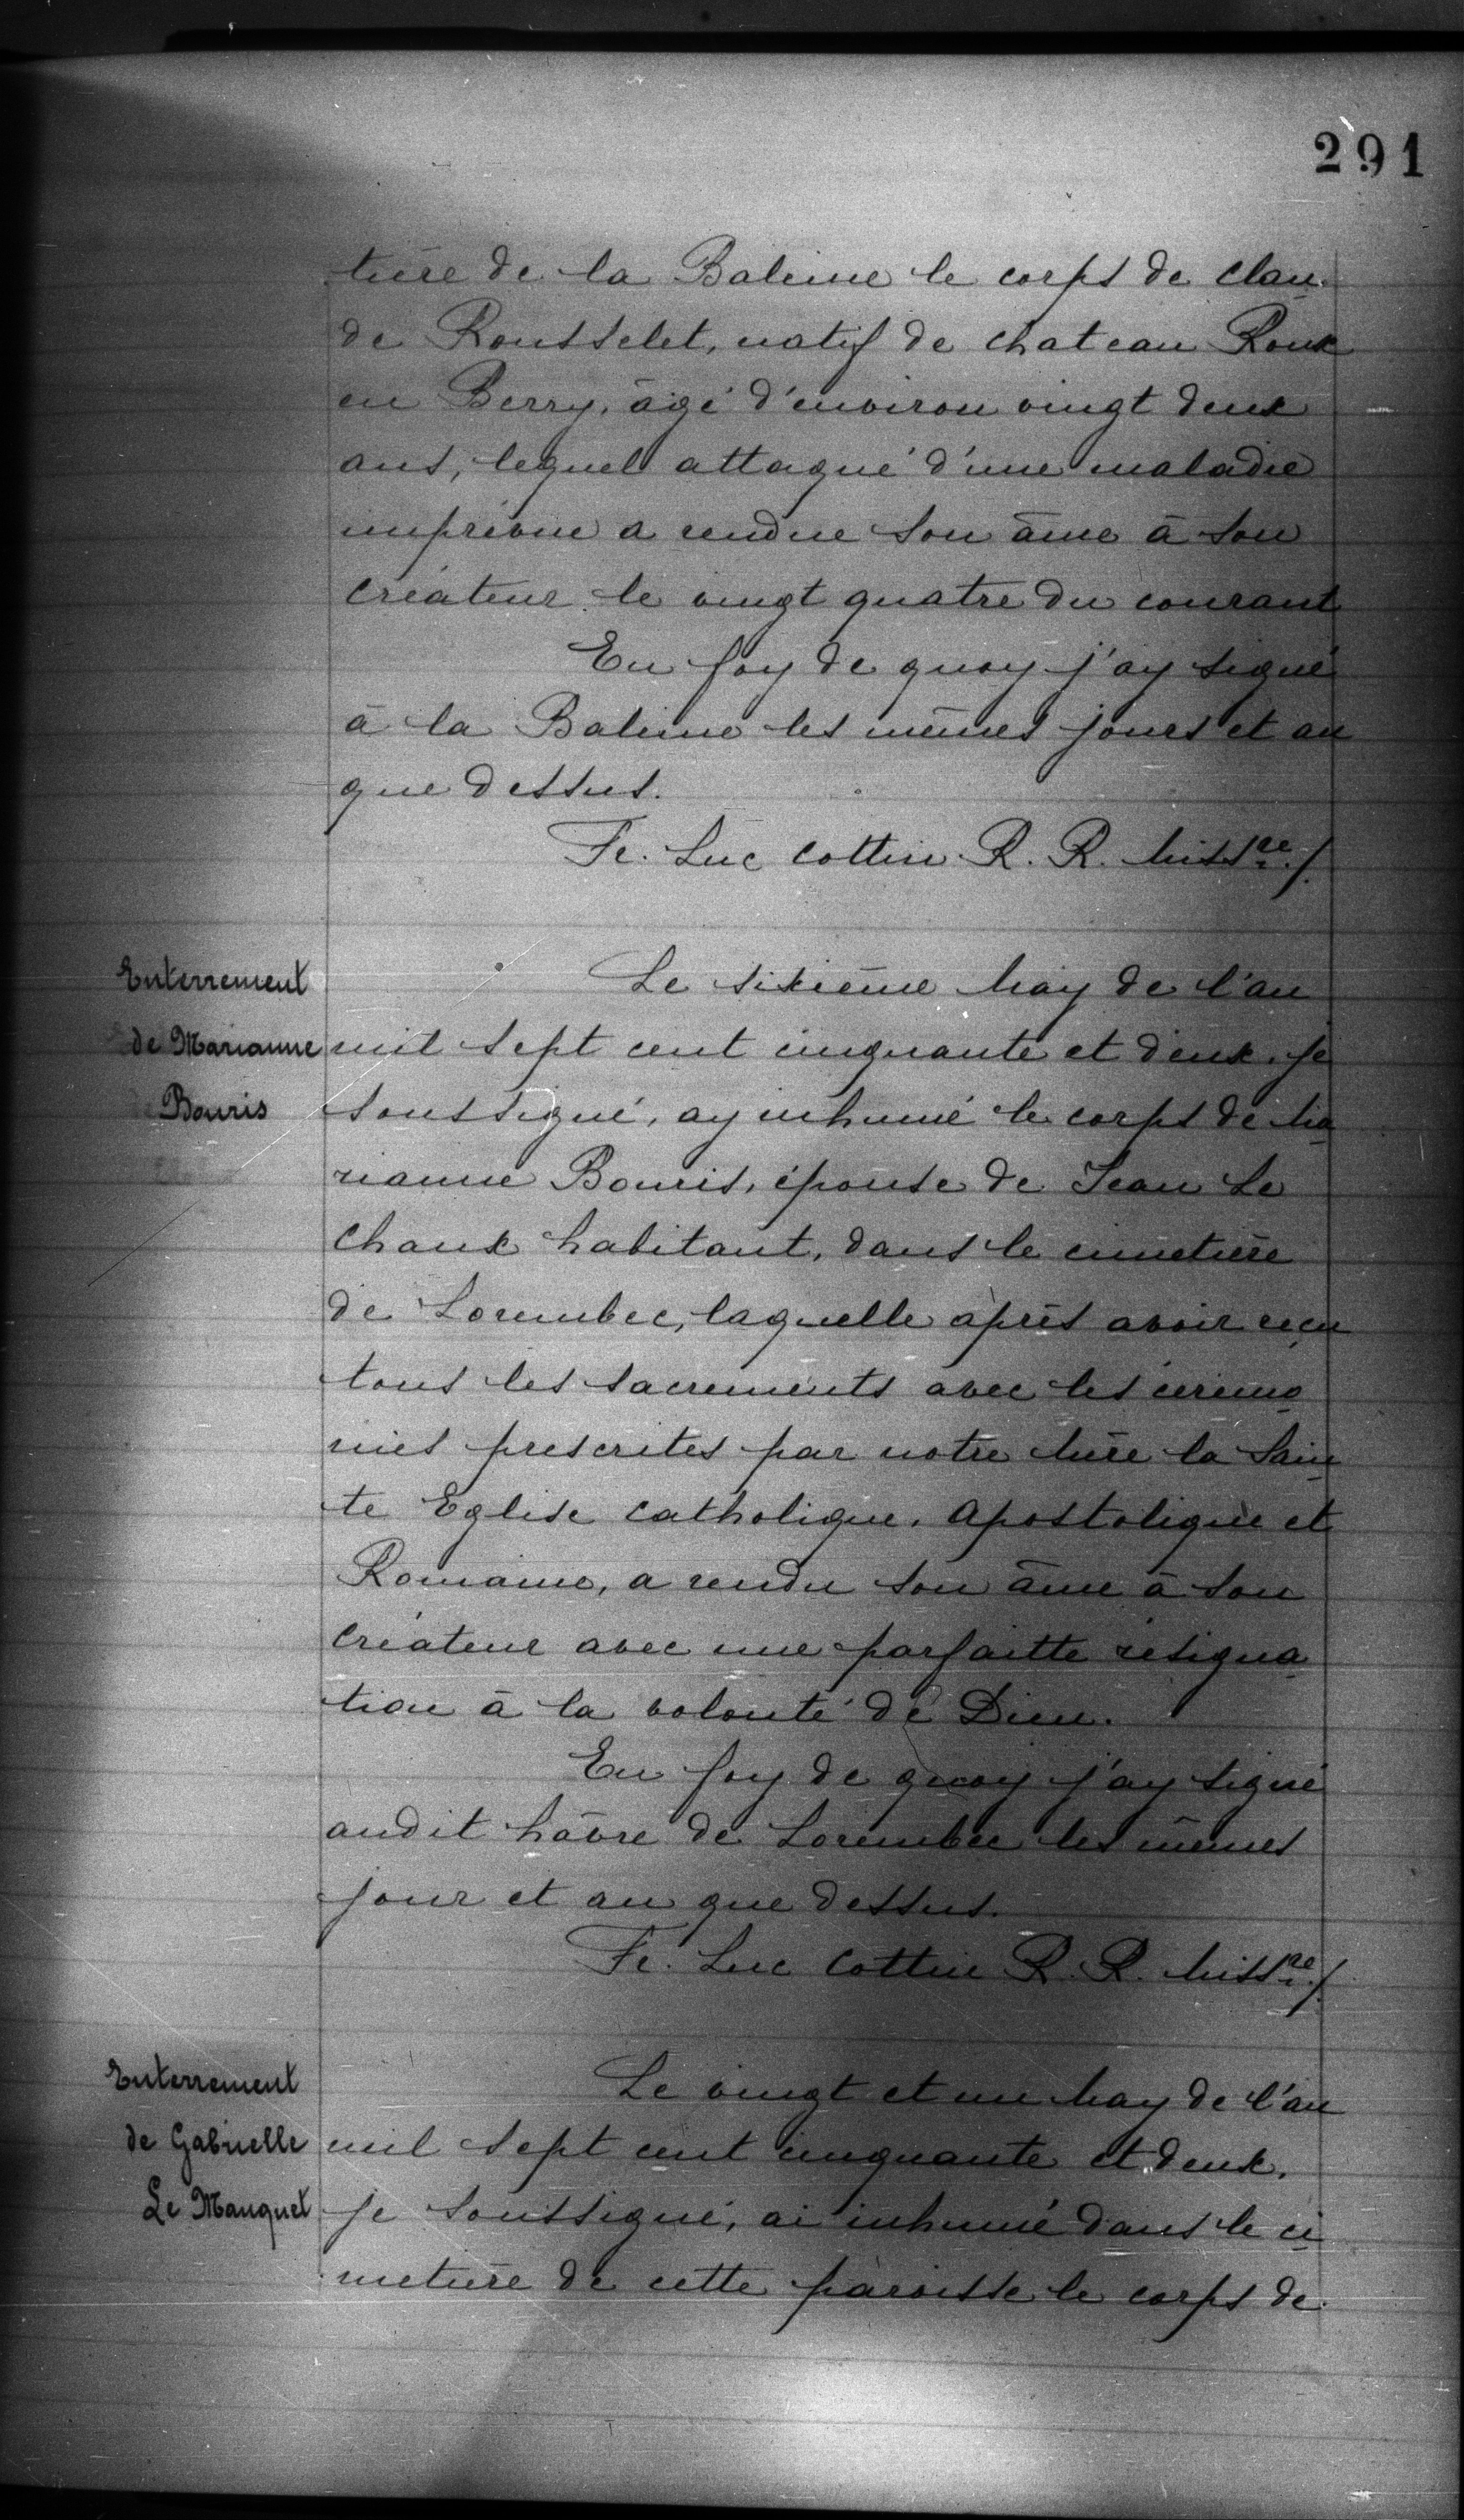 291
tière de la Baleine le corps de clau
de Rousselet, natif de chateau Roux
en Berry, âgé d'environ vingt deux
ans, lequel attaqué d'une maladie
imprévue a rendue son âme à son
créateur le vingt quatre du courant
En foy de quoy j'ay signé
à la Baleine les mêmes jours et an
que dessus.
Fe. Luc cottin R. R. Missre./.
Enterrement
de Marianne
Bouris
Le sixième May de l'an
mil sept cent cinquante et deux, je
soussigné, ay inhumé le corps de Ma
rianne Bouris, épouse de Jean Le
chaux habitant, dans le cimetière
de Lorembec, laquelle après avoir reçu
tous les sacrements avec les cérémo
nies prescrites par notre Mère la Sain
te Eglise catholique, apostolique et
Romaine, a rendu son âme à son
créateur avec une parfaitte résigna
tion à la volonté de Dieu.
En foy de quoy j'ay signé
audit hâvre de Lorembec les mêmes
jour et an que dessus.
Fe. Luc Cottin R. R. Missre./.
Enterrement
de Gabrielle
Le Manquet
Le vingt et un May de l'an
mil sept cent cinquante et deux,
je soussigné, ai inhumé dans le ci
metière de cette paroisse le corps de